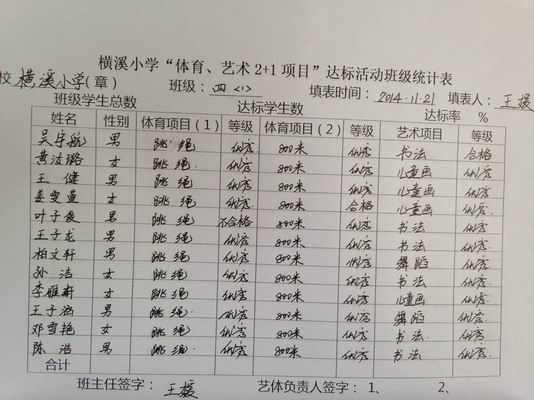 横溪小学“体育、艺术2+1项目”达标活动班级统计表
校 横溪小学(章) 班级：四<1> 填表时间：2014.11.21 填表人：王媛
班级学生总数 达标学生数 达标率 %
姓名 性别 体育项目（1） 等级 体育项目（2） 等级 艺术项目 等级
吴宇航 男 跳绳 优秀 800米 优秀 书法 合格
黄 女 跳绳 优秀 800米 优秀 儿童画 优秀
王健 男 跳绳 优秀 800米 优秀 儿童画 优秀
姜雯 女 跳绳 优秀 800米 合格 儿童画 优秀
叶子俊 男 跳绳 不合格 800米 优秀 书法 优秀
王子龙 男 跳绳 优秀 800米 优秀 书法 优秀
柏文轩 男 跳绳 优秀 800米 优秀 舞蹈 优秀
孙洁 女 跳绳 优秀 800米 优秀 书法 优秀
李雅新 女 跳绳 优秀 800米 优秀 儿童画 优秀
王子涵 男 跳绳 优秀 800米 优秀 舞蹈 优秀
邓雪艳 女 跳绳 优秀 800米 优秀 书法 优秀
陈浩 男 跳绳 优秀 800米 优秀 书法 优秀
合计
班主任签字： 王媛 艺体负责人签字：1、 2、